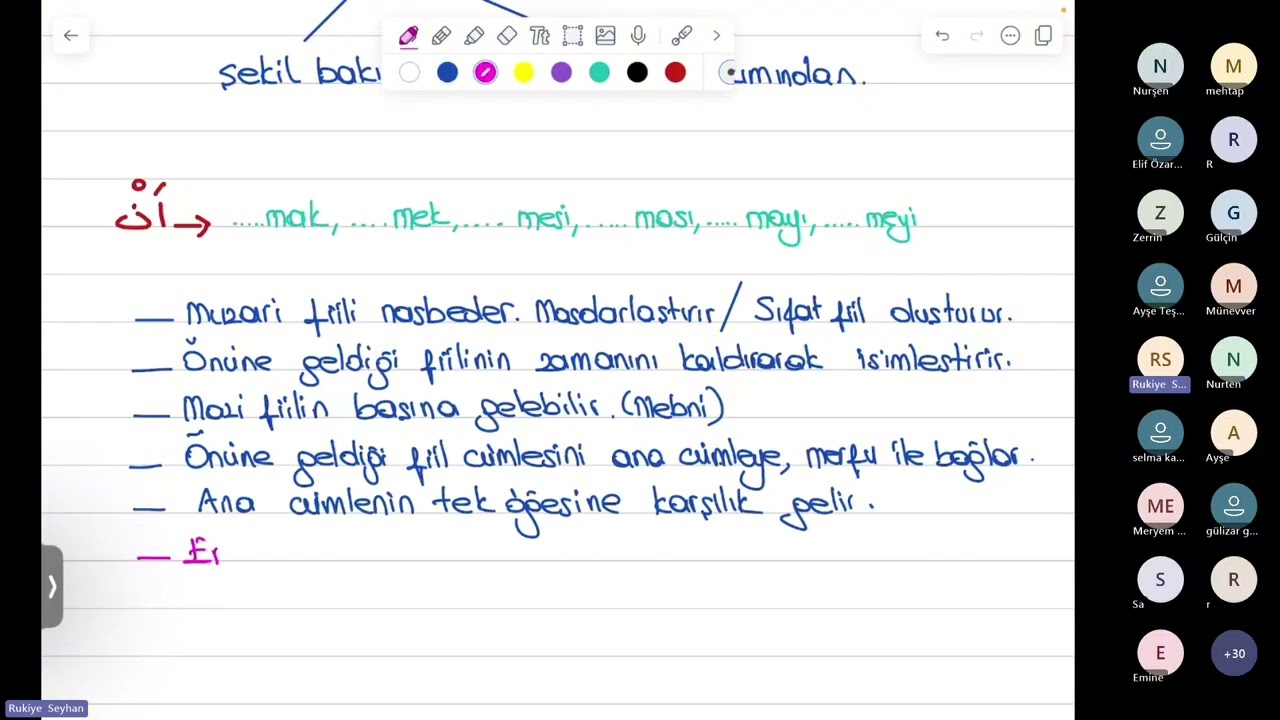 şekil bakı ımından.
أَنْ → .....mak, .... mek,.... mesi, ..... ması, ..... mayı, ..... meyi
— Muzari fiili nasbeder. Masdarlaştırır / Sıfat fiil oluşturur.
— Önüne geldiği fiilinin zamanını kaldırarak isimleştirir.
— Mazi fiilin başına gelebilir. (Mebni)
— Önüne geldiği fiil cümlesini ana cümleye, merfu ile bağlar.
— Ana cümlenin tek öğesine karşılık gelir.
— En
Tt
N
Nurşen
M
mehtap
Elif Özar...
R
R
Z
Zerrin
G
Gülçin
Ayşe Teş...
M
Münevver
RS
Rukiye S...
N
Nurten
selma ka...
A
Ayşe
ME
Meryem ...
gülizar g...
S
Sa
R
r
E
Emine
+30
Rukiye Seyhan